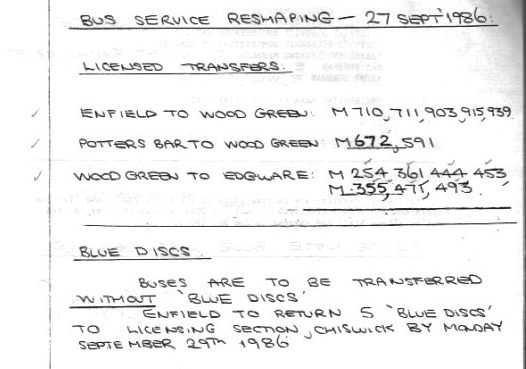 BUS SERVICE RESHAPING - 27 SEPT' 1986.
LICENSED TRANSFERS.
ENFIELD TO WOOD GREEN: M 710, 711, 903, 915, 939
POTTERS BAR TO WOOD GREEN: M 672, 591
WOOD GREEN TO EDGWARE: M 254 361 444 453
M 355, 471, 493.
BLUE DISCS.
BUSES ARE TO BE TRANSFERRED
WITHOUT 'BLUE DISCS'
ENFIELD TO RETURN 5 'BLUE DISCS'
TO LICENSING SECTION, CHISWICK BY MONDAY
SEPTEMBER 29TH 1986